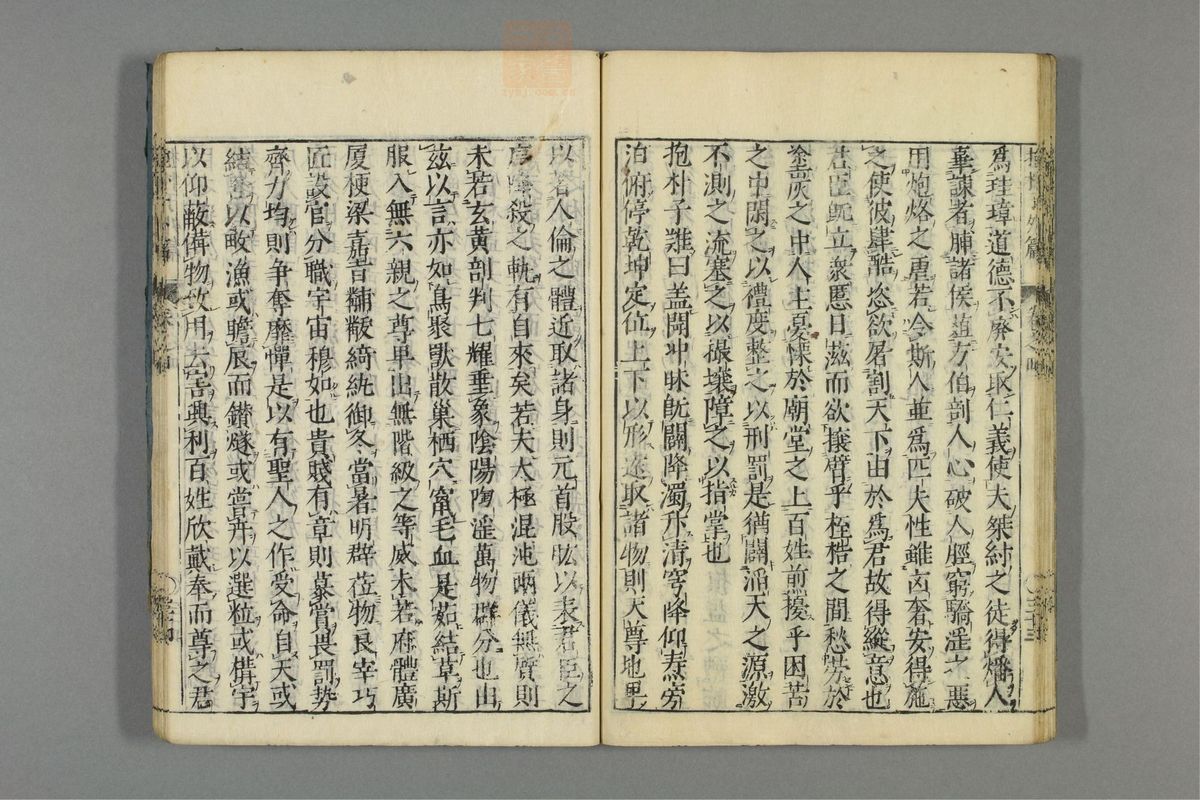 爲珪璋道德不廢安取仁義使夫桀紂之徒得燔人
辜諫者脯諸侯葅方伯剖人心破人脛窮驕淫之惡
用炮烙之虐若令斯人並爲匹夫性雖凶奢安得施
之使彼肆酷恣欲屠割天下由於爲君故得縱意也
君臣旣立衆慝日滋而欲攘臂乎桎梏之間愁勞於
塗炭之中人主憂慄於廟堂之上百姓煎擾乎困苦
之中閑之以禮度整之以刑罰是猶闢滔天之源激
不測之流塞之以撮壤障之以指掌也
抱朴子難曰盖聞冲昧旣闢降濁升清穹隆仰燾旁
泊俯停乾坤定位上下以形遠取諸物則天尊地卑
以著人倫之體近取諸身則元首股肱以表君臣之
序降殺之軌有自來矣若夫太極混沌兩儀無質則
未若玄黃剖判七耀垂象陰陽陶淫萬物群分也由
兹以言亦如鳥聚獸散巢栖穴竄毛血是茹結草斯
服入無六親之尊卑出無階級之等威未若庇體廣
厦梗梁嘉旨黼黻綺紈御冬當暑明辟莅物良宰巧
匠設官分職宇宙穆如也貴賤有章則慕賞畏罰勢
齊力均則争奪靡憚是以有聖人之作受命自天或
結罟以畋漁或瞻辰而鑚燧或嘗卉以選粒或構宇
以仰蔽備物致用去害興利百姓欣戴奉而尊之君